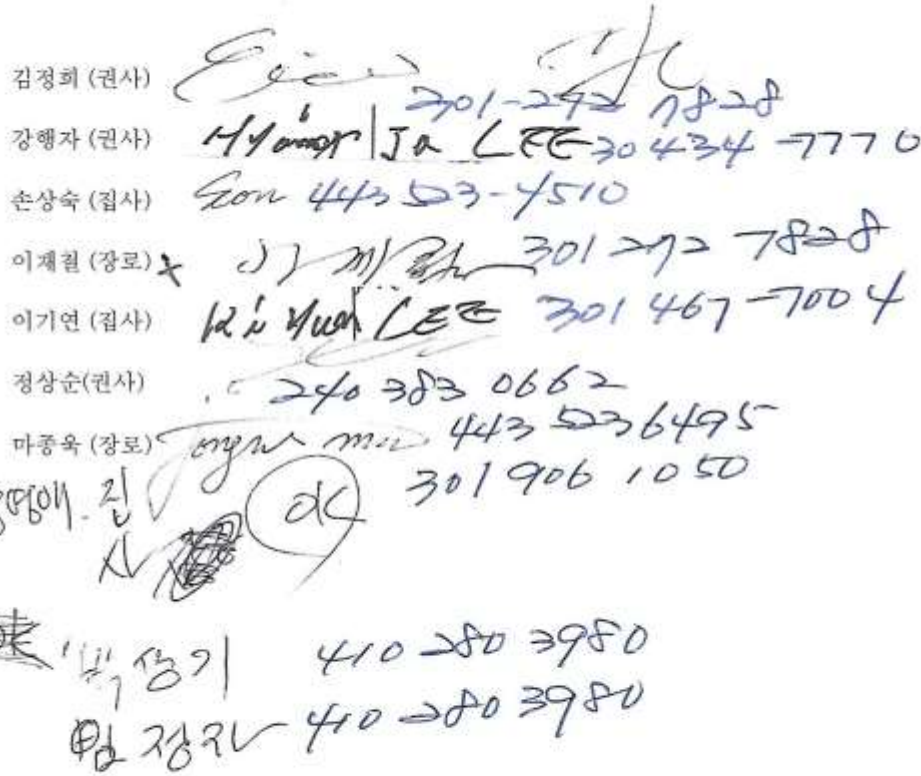 김정희 (권사)
301-292 7828
강행자 (권사) Hyang Ja LEE 30 434 -7770
손상숙 (집사) Son 443 523-4510
이재철 (장로) x 이재철 301 292 7828
이기연 (집사) Ki Yun LEE 301 467-7004
정상순(권사) 240 383 0662
마종욱 (장로) Jongw ma 443 523 6495
집 OK 301 906 1050
사
박상기 410 280 3980
임정자 410 280 3980